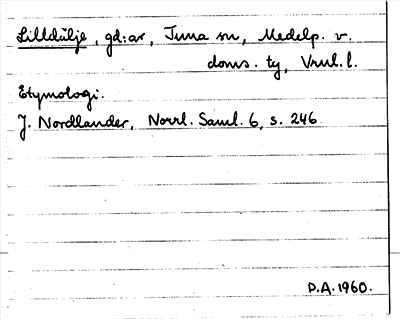 Lilldälje, gd:ar, Tuna sn, Medelp. v.
doms. tg, Vml. l.
Etymologi.
J. Nordlander, Norrl. Saml. 6, s. 246
P.A. 1960.